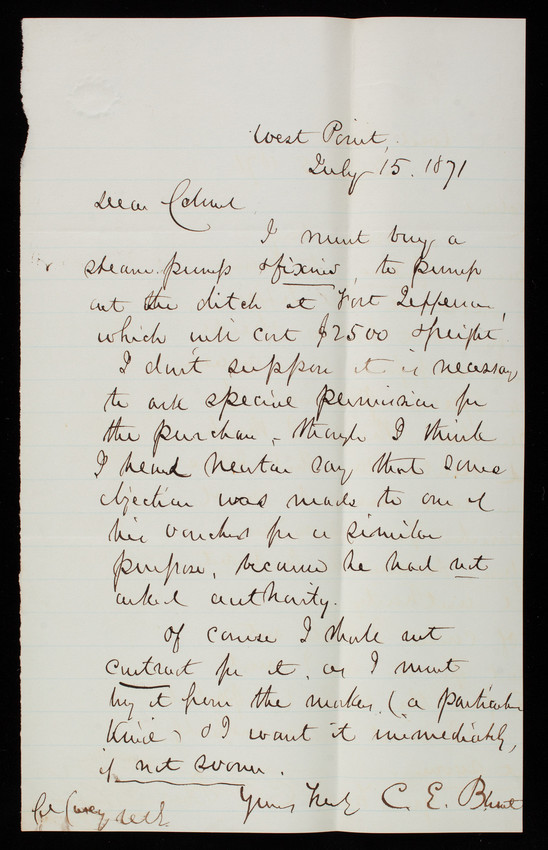 West Point,
July 15. 1871
Dear Colonel
I must buy a
steam pump & fixins, to pump
out the ditch at Fort Jefferson,
which will cost $2500 & freight.
I don't suppose it is necessary
to ask special permission for
the purchase, though I think
I heard Newton say that some
objection was made to one of
his vouchers for a similar
purpose, because he had not
asked authority.
Of course I shall not
contract for it, as I must
buy it from the maker. (a particular
kind) & I want it immediately,
if not sooner.
Yours truly C. E. Blunt
Col Casey